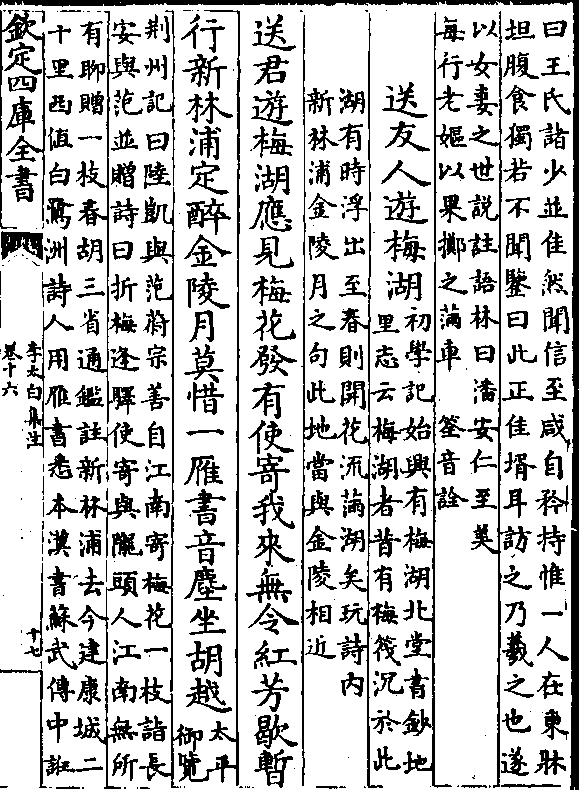 曰王氏諸少並佳然聞信至咸自矜持惟一人在東牀
坦腹食獨若不聞鑒曰此正佳壻耳訪之乃羲之也遂
以女妻之世說註語林曰潘安仁至美
每行老嫗以果擲之滿車 筌音詮
送友人遊梅湖
初學記始興有梅湖北堂書鈔地
里志云梅湖者昔有梅筏沉於此
湖有時浮出至春則開花流滿湖矣玩詩内
新林浦金陵月之句此地當與金陵相近
送君遊梅湖應見梅花發有使寄我來無令紅芳歇暫
行新林浦定醉金陵月莫惜一雁書音塵坐胡越
太平
御覽
荆州記曰陸凱與范蔚宗善自江南寄梅花一枝詣長
安與范並贈詩曰折梅逢驛使寄與隴頭人江南無所
有聊贈一枝春胡三省通鑑註新林浦去今建康城二
十里西値白鷺洲詩人用雁書悉本漢書蘇武傳中誑
欽定四庫全書
李太白集注
卷十六
十七